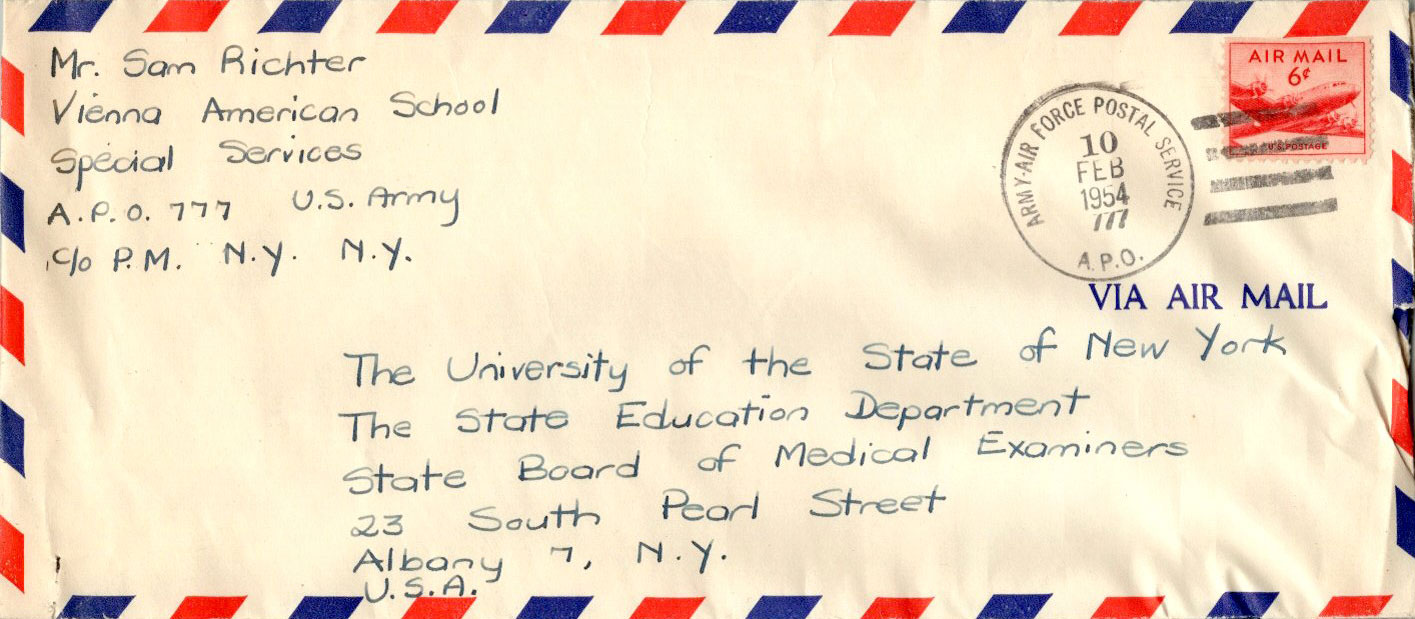 Mr. Sam Richter
Vienna American School
Special Services
A.P.O. 777 U.S. Army
c/o P.M. N.Y. N.Y.
AIR MAIL
6¢
U.S. POSTAGE
ARMY-AIR FORCE POSTAL SERVICE
10
FEB
1954
777
A.P.O.
VIA AIR MAIL
The University of the State of New York
The State Education Department
State Board of Medical Examiners
23 South Pearl Street
Albany 7, N.Y.
U.S.A.